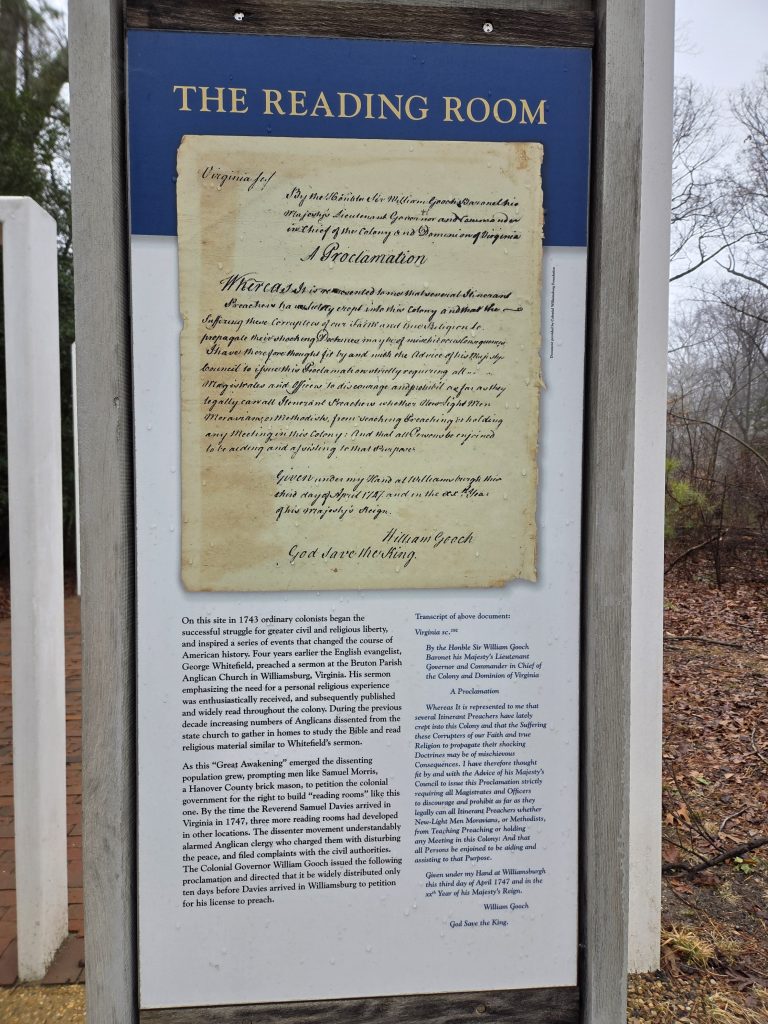 THE READING ROOM
Virginia ss/
By the Honble Sir William Gooch Baronet his
Majesty's Lieutenant Governor and Commander
in Chief of the Colony and Dominion of Virginia
A Proclamation
Whereas It is represented to me that several Itinerant
Preachers have lately crept into this Colony and that the
Suffering these Corrupters of our Faith and true Religion to
propagate their shocking Doctrines may be of mischievous Consequences
I have therefore thought fit by and with the Advice of his Majestys
Council to issue this Proclamation strictly requiring all
Magistrates and Officers to discourage and prohibit as far as they
legally can all Itinerant Preachers whether New-Light Men
Moravians, or Methodists, from Teaching Preaching or holding
any Meeting in this Colony: And that all Persons be enjoined
to be aiding and assisting to that Purpose
Given under my Hand at Williamsburgh this
third day of April 1747 and in the xx.th Year
of his Majesty's Reign.
William Gooch
God Save the King.
Document provided by Colonial Williamsburg Foundation
On this site in 1743 ordinary colonists began the
successful struggle for greater civil and religious liberty,
and inspired a series of events that changed the course of
American history. Four years earlier the English evangelist,
George Whitefield, preached a sermon at the Bruton Parish
Anglican Church in Williamsburg, Virginia. His sermon
emphasizing the need for a personal religious experience
was enthusiastically received, and subsequently published
and widely read throughout the colony. During the previous
decade increasing numbers of Anglicans dissented from the
state church to gather in homes to study the Bible and read
religious material similar to Whitefield's sermon.
As this "Great Awakening" emerged the dissenting
population grew, prompting men like Samuel Morris,
a Hanover County brick mason, to petition the colonial
government for the right to build "reading rooms" like this
one. By the time the Reverend Samuel Davies arrived in
Virginia in 1747, three more reading rooms had developed
in other locations. The dissenter movement understandably
alarmed Anglican clergy who charged them with disturbing
the peace, and filed complaints with the civil authorities.
The Colonial Governor William Gooch issued the following
proclamation and directed that it be widely distributed only
ten days before Davies arrived in Williamsburg to petition
for his license to preach.
Transcript of above document:
Virginia sc.
By the Honble Sir William Gooch
Baronet his Majesty's Lieutenant
Governor and Commander in Chief of
the Colony and Dominion of Virginia
A Proclamation
Whereas It is represented to me that
several Itinerant Preachers have lately
crept into this Colony and that the Suffering
these Corrupters of our Faith and true
Religion to propagate their shocking
Doctrines may be of mischievous
Consequences. I have therefore thought
fit by and with the Advice of his Majesty's
Council to issue this Proclamation strictly
requiring all Magistrates and Officers
to discourage and prohibit as far as they
legally can all Itinerant Preachers whether
New-Light Men Moravians, or Methodists,
from Teaching Preaching or holding
any Meeting in this Colony: And that
all Persons be enjoined to be aiding and
assisting to that Purpose.
Given under my Hand at Williamsburgh
this third day of April 1747 and in the
xxth Year of his Majesty's Reign.
William Gooch
God Save the King.